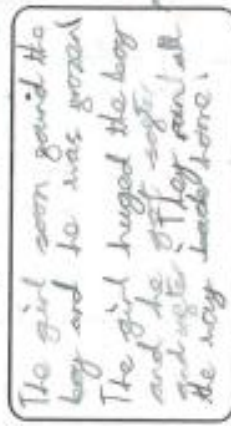 The girl soon gound the
boy and he was grozen
The girl huged the boy
and he
and They run all
the way back home.